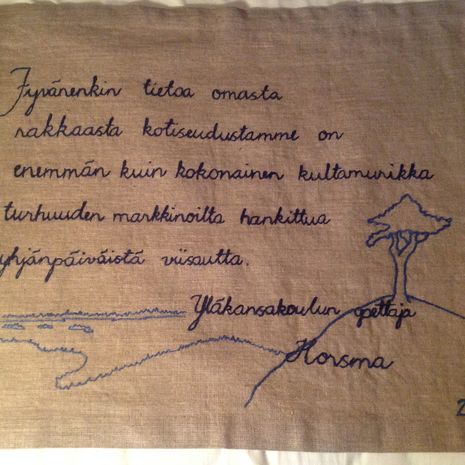 Jyvänenkin tietoa omasta
rakkaasta kotiseudustamme on
enemmän kuin kokonainen kultamurikka
turhuuden markkinoilta hankittua
yhjänpäiväistä viisautta.
Yläkansakoulun opettaja
Horsma
2